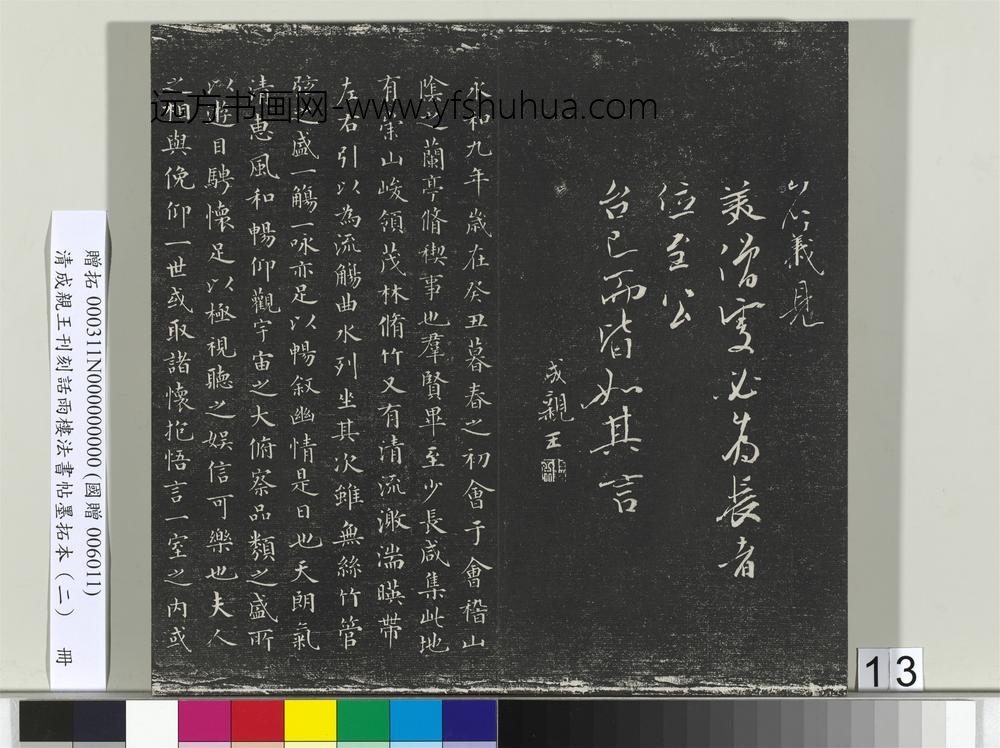 美僧虔必為長者
位至公
台已而皆如其言
成親王
永和九年歲在癸丑暮春之初會于會稽山
陰之蘭亭脩稧事也羣賢畢至少長咸集此地
有崇山峻領茂林脩竹又有清流激湍暎帶
左右引以為流觴曲水列坐其次雖無絲竹管
弦之盛一觴一詠亦足以暢敘幽情是日也天朗氣
清惠風和暢仰觀宇宙之大俯察品類之盛所
以遊目騁懷足以極視聽之娛信可樂也夫人
之相與俛仰一世或取諸懷抱悟言一室之內或
远方书画网-www.yfshuhua.com
贈拓 000311N000000000 (國贈 006011)
清成親王刊刻話雨樓法書帖墨拓本（二） 冊
13